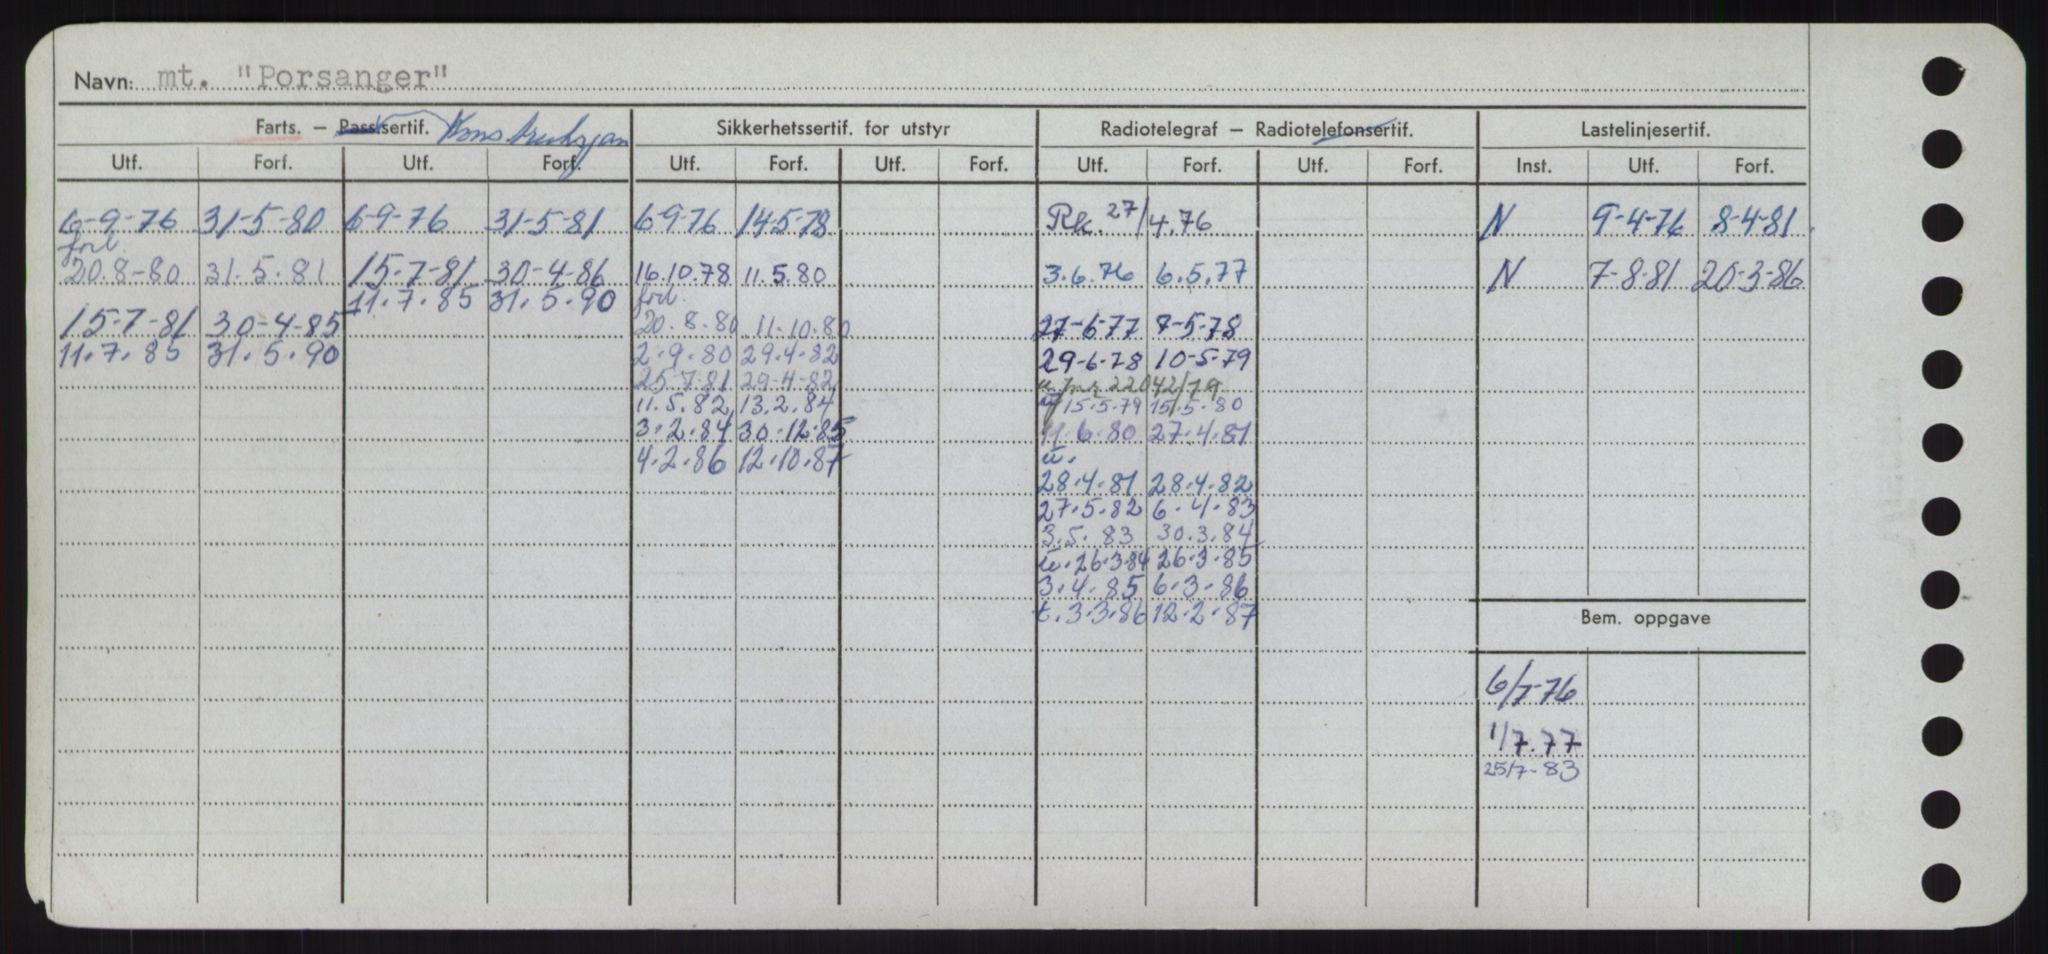 Navn: mt. "Porsanger"
Farts. – Passasertif. Sikkerhetssertif. for utstyr Radiotelegraf – Radiotelefonsertif. Lastelinjesertif.
Utf. Forf. Utf. Forf. Utf. Forf. Utf. Forf. Utf. Forf. Utf. Forf. Inst. Utf. Forf.
6-9-76 31-5-80 6-9-76 31-5-81 6-9-76 14-5-78 Rk. 27/4.76 N 9-4-76 8-4-81
forl.
20.8-80 31.5.81 15-7-81 30-4-86 16.10.78 11.5.80 3.6.76 6.5.77 N 7-8-81 20-3-86
11.7.85 31.5.90 forl.
15-7-81 30-4-85 20.8.80 11.10.80 27-6-77 7-5-78
11.7.85 31.5.90 2.9.80 29.4.82 29-6-78 10-5-79
25-7-81 29-4-82 22042/79
11.5.82 13.2.84 15.5.79 15.5.80
3.2.84 30.12.85 11.6.80 27.4.81
4.2.86 12.10.87 u.
28.4.81 28.4.82
27.5.82 6.4.83
3.5.83 30.3.84
u.26.3.84 26.3.85
3.4.85 6.3.86
t.3.3.86 12.2.87
Bem. oppgave
6/7-76
1/7.77
25/7-83